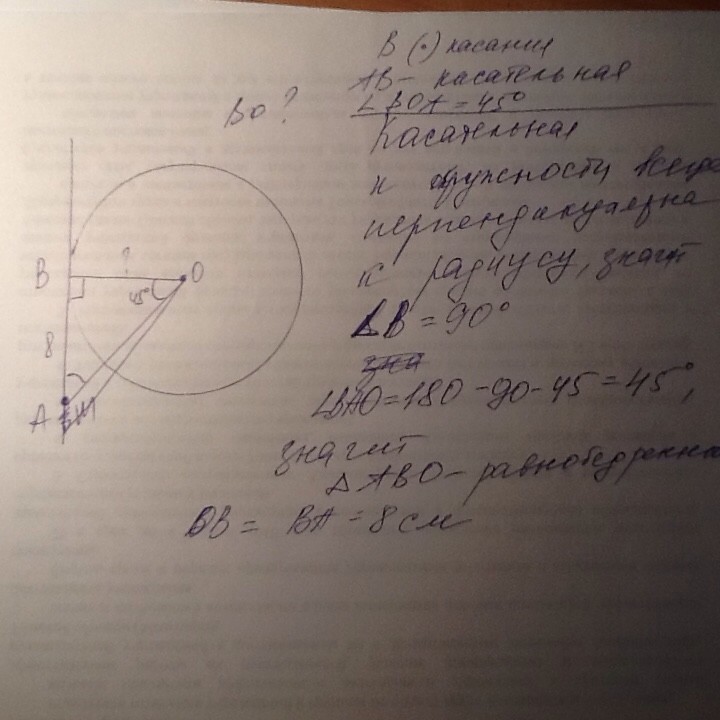 В (·) касания
АВ - касательная
∠BOA = 45°
Во ?
Касательная
к окружности всегда
перпендикулярна
к радиусу, значит
∠В = 90°
∠BAO = 180 - 90 - 45 = 45°,
значит
△ ABO - равнобедренны
OB = BA = 8 см
В
?
О
45°
8
А